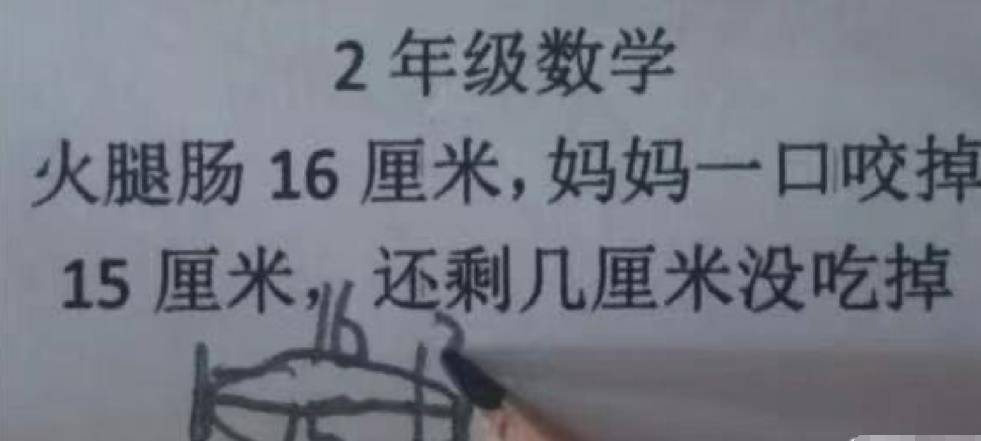 2 年级数学
火腿肠 16 厘米，妈妈一口咬掉
15 厘米， 还剩几厘米没吃掉
16 ?
15